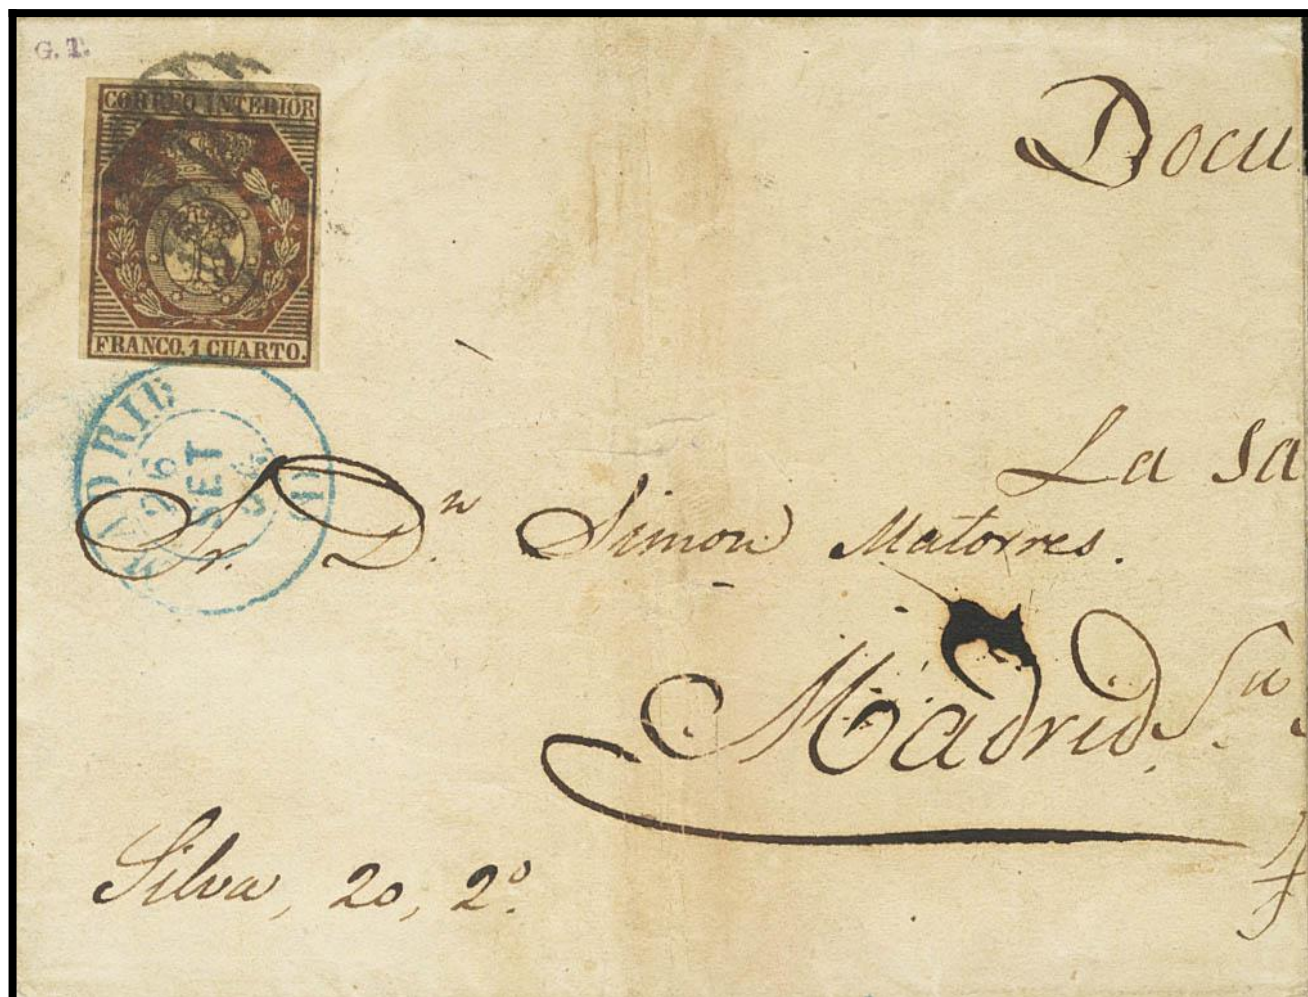 G. T.
CORREO INTERIOR
FRANCO. 1 CUARTO.
MADRID
26
SET
Docu
La sa
Sr. Dn. Simon Matorres.
Madrid.
Silva, 20, 2º.